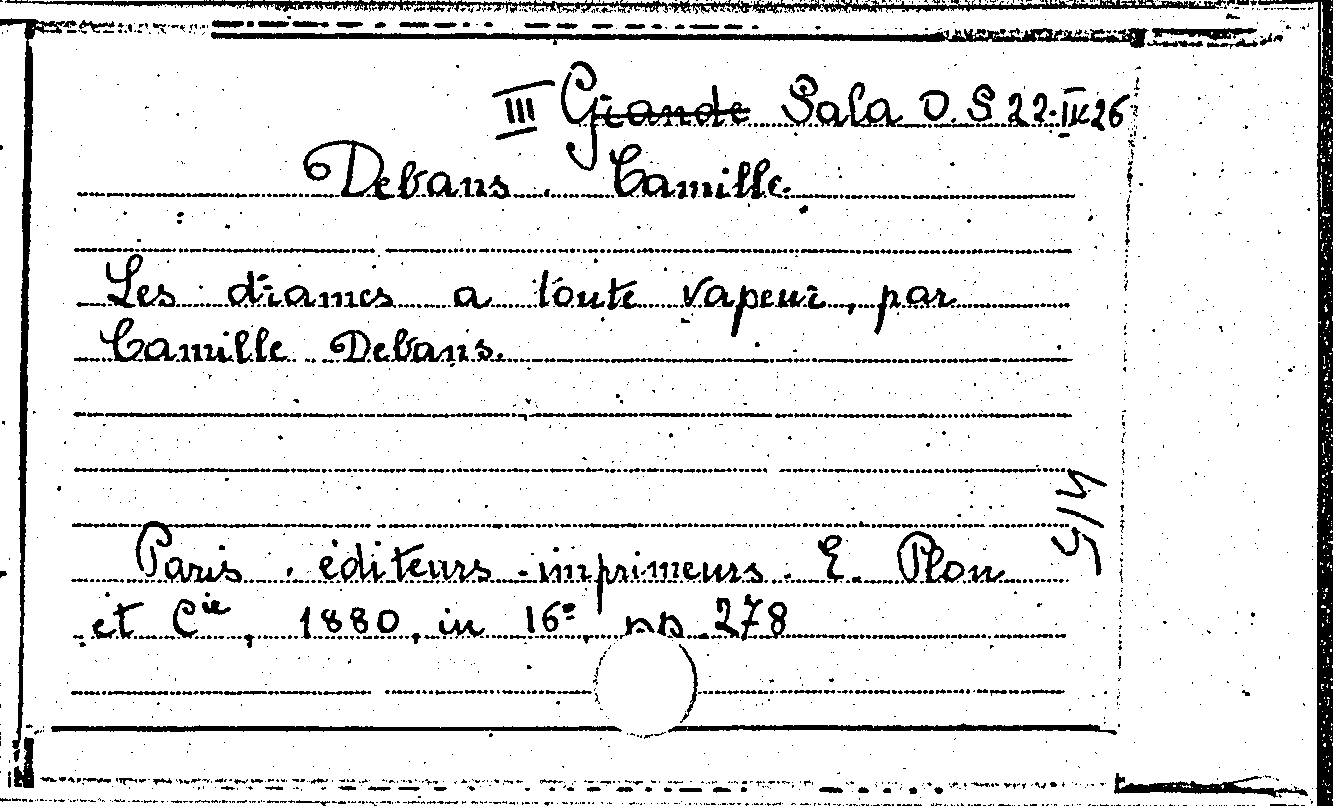 III Grande Sala O.S 22.IX 26
Debans. Camille.
Les drames a toute vapeur, par
Camille Debans.
Paris. éditeurs-imprimeurs. E. Plon
et Cie, 1880, in 16º, pp. 278